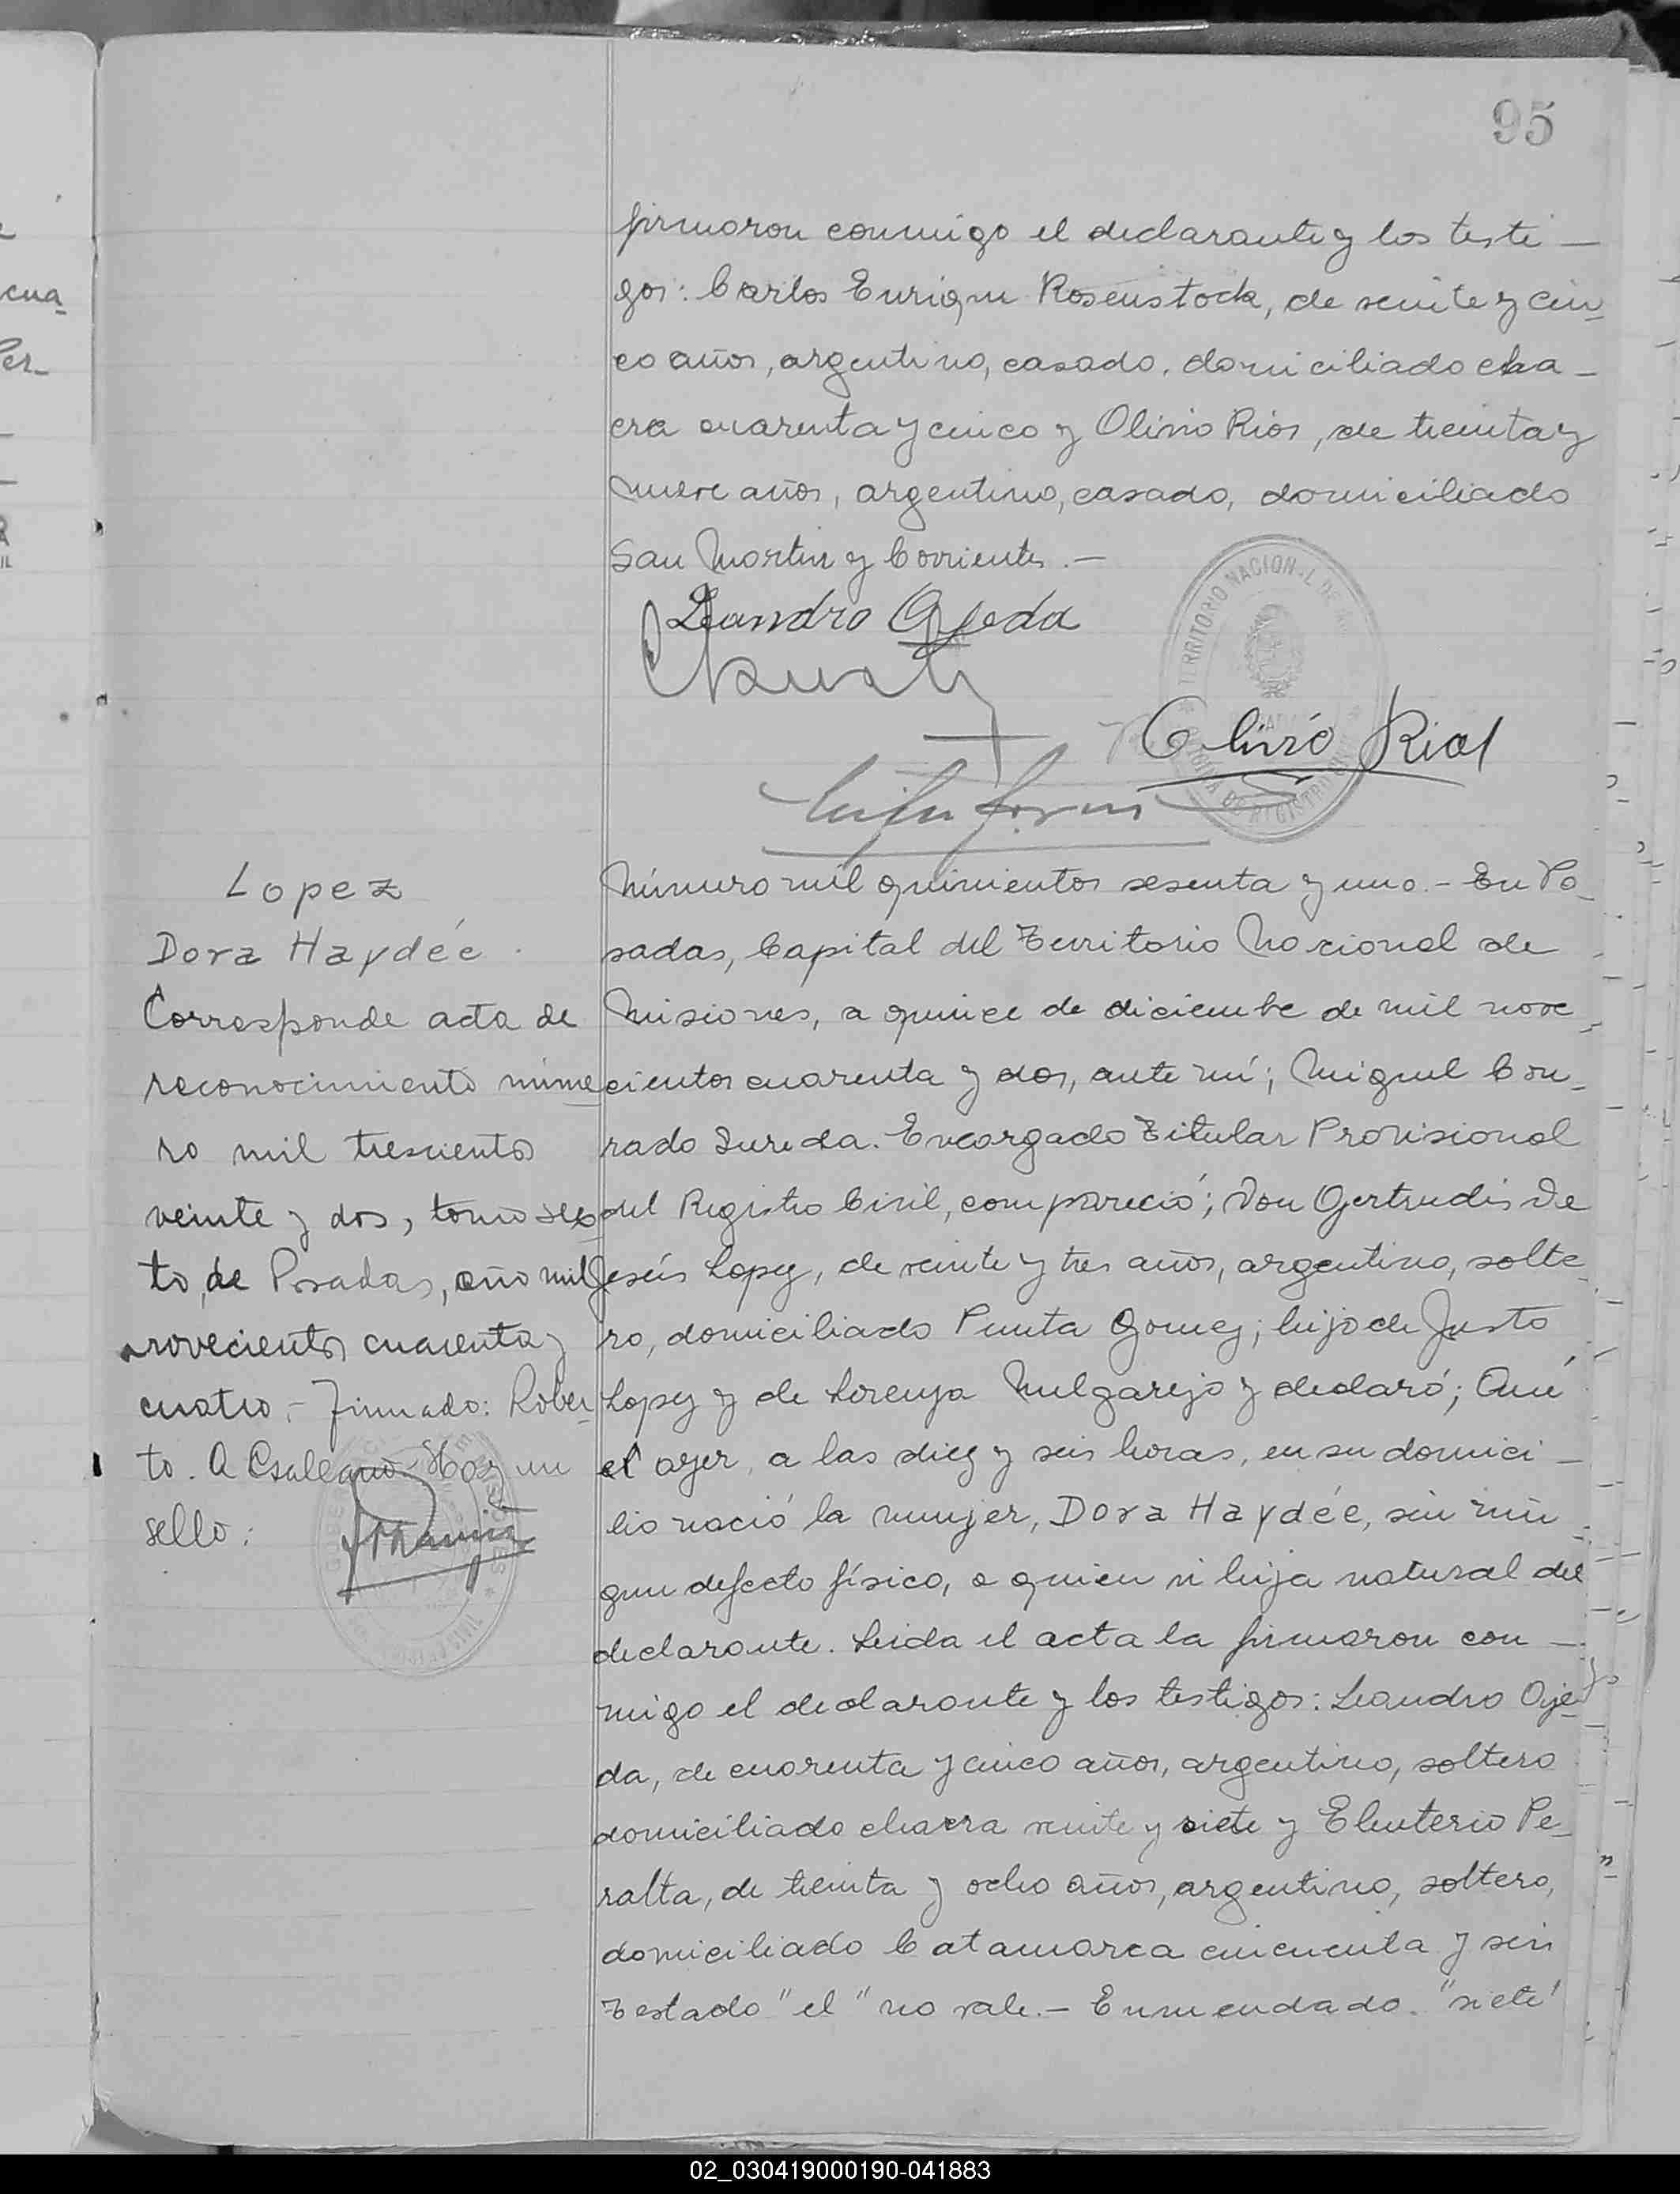 95
firmaron conmigo el declarante y los testi-
gos: Carlos Enrique Rosenstock, de veinte y cin-
co años, argentino, casado, domiciliado cha-
cra cuarenta y cinco y Olivio Rios, de treinta y
nueve años, argentino, casado, domiciliado
San Martin y Corrientes.-
Leandro Ojeda
TERRITORIO NACIONAL DE
Olivio Rios
Lopez
Dora Haydée
Corresponde acta de
reconocimiento núme
ro mil trescientos
veinte y dos, tomo sex-
to, de Posadas, año mil
novecientos cuarenta y
cuatro.- Firmado: Rober-
to. A Hay un
sello:
Número mil quinientos sesenta y uno.- En Po-
sadas, Capital del Territorio Nacional de
Misiones, a quince de diciembre de mil nove-
cientos cuarenta y dos, ante mí; Miguel Con-
rado Sureda. Encargado Titular Provisional
del Registro Civil, compareció; Don Gertrudis De
Jesús Lopez, de veinte y tres años, argentino, solte-
ro, domiciliado Punta Gomez; hijo de Justo
Lopez y de Lorenza Melgarejo y declaró; Qué
el ayer, a las diez y seis horas, en su domici-
lio nació la mujer, Dora Haydée, sin nin-
gun defecto físico, a quien vi hija natural del
declarante. Leida el acta la firmaron con-
migo el declarante y los testigos: Leandro Oje-
da, de cuarenta y cinco años, argentino, soltero
domiciliado chacra veinte y siete y Eleuterio Pe-
ralta, de treinta y ocho años, argentino, soltero,
domiciliado Catamarca cincuenta y seis
Testado "el" no vale.- Enmendado. "siete"
02_030419000190-041883